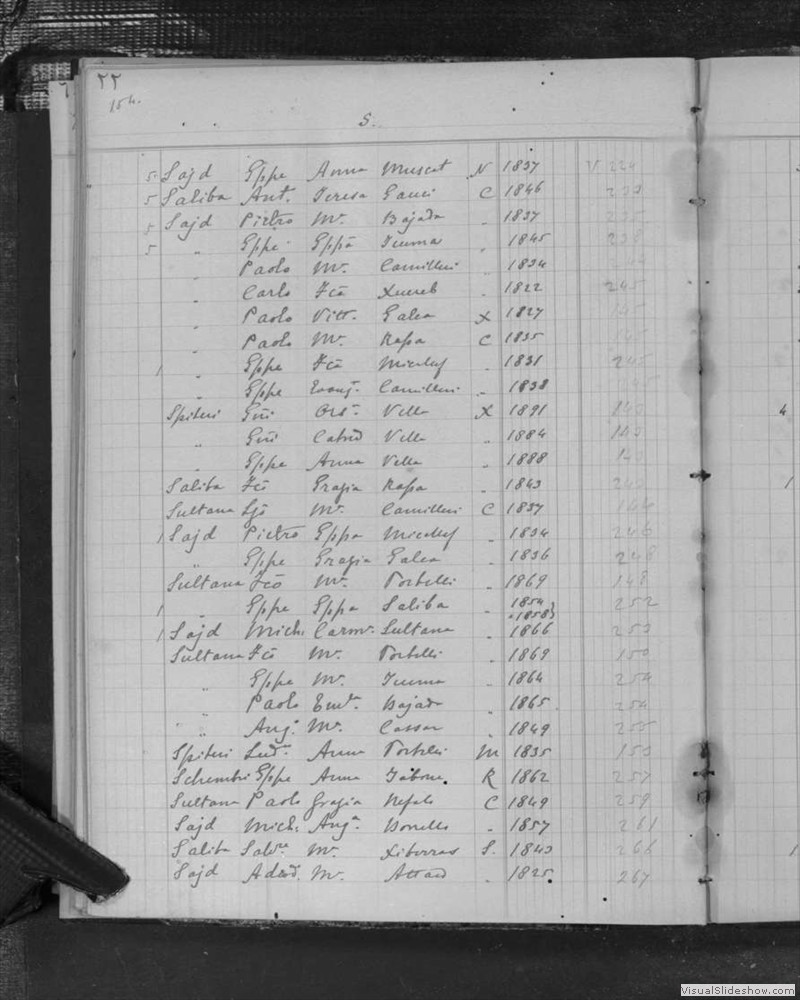 104.
S.
5 Sajd Gppe Anna Muscat N 1837 V 224
5 Saliba Ant. Teresa Gauci C 1846
5 Sajd Pietro Mª. Bajada „ 1837
5 „ Gppe Gppa Tumma „ 1845
„ Paolo Mª. Camilleri „ 1834
„ Carlo Fca Xuereb „ 1822 245
„ Paolo Vitt. Galea X 1827
„ Paolo Mª. Rapa C 1835
1 „ Gppe Fca Micallef „ 1831 245
„ Gppe Evang. Camilleri „ 1838
Spiteri Gni Ors. Vella X 1891 140
„ Gni Vella „ 1884 140
„ Gppe Anna Vella „ 1888
Saliba Fco Grazia Rapa „ 1843
Sultana Mª. Camilleri C 1837
1 Sajd Pietro Gppa Micallef „ 1834 246
„ Gppe Grazia Galea „ 1836 248
Sultana Fco Mª. Portelli „ 1869 148
1 „ Gppe Gppa Saliba „ 1854 252
1858
1 Sajd Mich. Carmª. Sultana „ 1866 253
Sultana Fco Mª. Portelli „ 1869 150
„ Gppe Mª. Tumma „ 1864 254
Paolo Bajada „ 1865 254
„ „ Ang. Mª. Cassar „ 1849 255
Spiteri Anna Portelli M 1835 153
Schembri Gppe Anna Tabone R 1862 257
Sultana Paolo Grazia C 1849 259
Sajd Mich. Angª Borelli „ 1857 261
Saliba Mª. Xiberras S. 1843 266
Sajd Mª. Attard „ 1825 267
4
1
1
VisualSlideshow.com